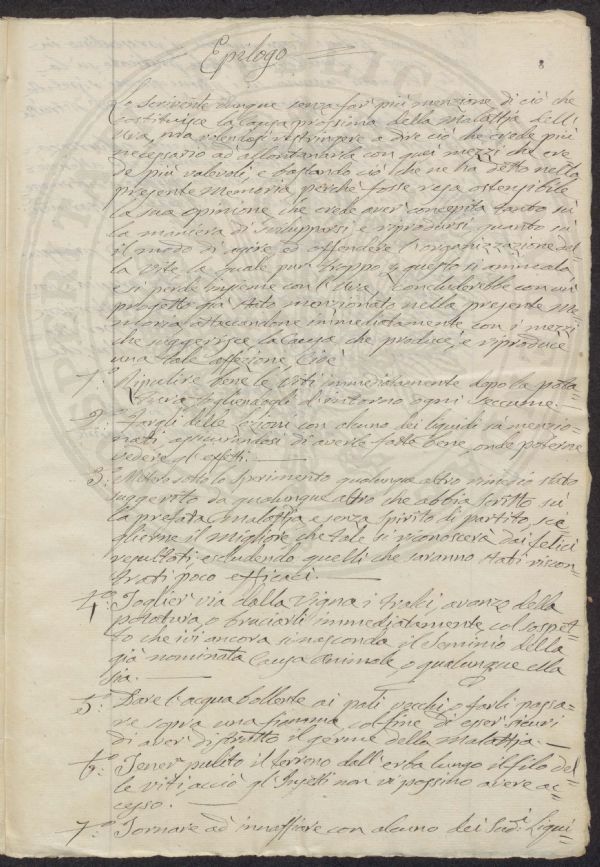 Epilogo
8
Lo Scrivente dunque senza far più menzione di ciò che
costituisce la Causa prossima della Malattia dell'
Uva, ma volendosi restringere a dire ciò che crede più
necessario ad allontanarla con quei mezzi che cre=
de più valevoli, e bastando ciò che ne ha detto nella
presente Memoria perchè fosse resa ostensibile
la sua opinione, che crede aver concepita tanto sù
la maniera di svilupparsi, e riprodursi, quanto sù
il modo di agire ed offendere l'organizzazione del=
la Vite, la quale pur troppo questo si ammala
e si perde insieme con l'Uva, concluderebbe con un
progetto già stato menzionato nella presente Me=
moria attaccandone immediatamente, con i mezzi
che suggerisce la Causa che produce, e riproduce
una tale affezione, Cioè
1.° Ripulire bene le Viti immediatamente dopo la pota=
tura togliendogli d'intorno ogni seccume.
2.° Fargli delle lozioni con alcuno dei liquidi già menzio=
nati, assicurandosi di averle fatte bene, onde poterne
vedere gl'effetti.
3.° Mettere sotto lo Sperimento qualunque altro rimedio stato
suggerito da qualunque altro che abbia scritto sù
la prefata Malattia, e senza Spirito di partito, sce=
glierne il migliore che tale si riconoscerà dai felici
resultati, escludendo quelli che saranno stati riscon=
trati poco efficaci.
4.° Toglier via dalla Vigna i tralci, avanzo della
potatura, o bruciarli immediatamente col sospet=
to che ivi ancora si nasconda il Seminio della
già nominata Causa Animale, o qualunque ella
sia.
5.° Dare l'acqua bollente ai pali vecchi, o farli passa=
re sopra una fiamma col fine di esser sicuri
di aver distrutto il germe della Malattia.
6.° Tener pulito il terreno dall'erba lungo il filo del=
le viti acciò gl'Insetti non vi possino avere ac=
cesso.
7.° Tornare ad innaffiare con alcuno dei Sud.i Liqui=